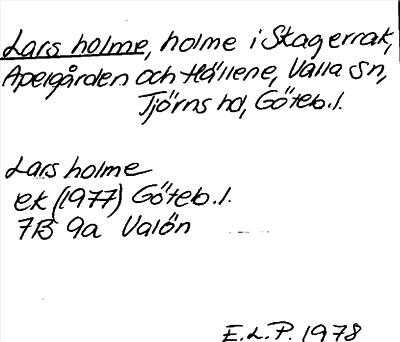 Lars holme, holme i Skagerrak,
Apelgården och Hällene, Valla sn,
Tjörns hd, Göteb.l.
Lars holme
ek (1977) Göteb.l.
7B 9a Valön
E.L.P. 1978